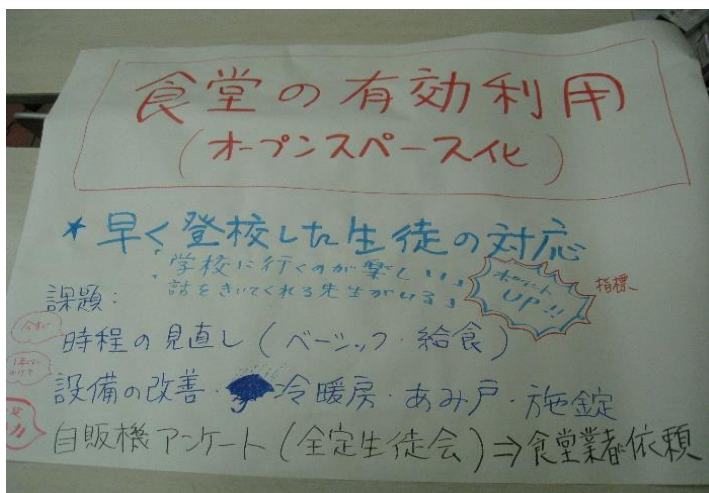 食堂の有効利用
(オープンスペース化)
* 早く登校した生徒の対応
「学校に行くのが楽しい」
「話をきいてくれる先生がいる」
ポイント
UP!!
指標
課題:
今すぐ
時程の見直し(ベーシック・給食)
設備の改善・冷暖房・あみ戸・施錠
自販機アンケート(全定生徒会)⇒食堂業者依頼